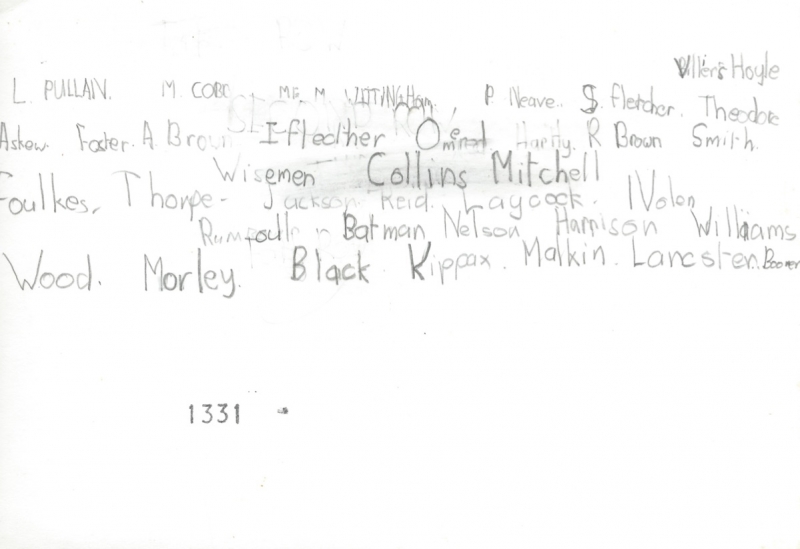 Villiers Hoyle
L. PULLAN. M. COBB. MR. M. WITTINGHam, P. Neave. S. fletcher. Theodore
Askew. Foster. A. Brown I-fleother Hardy. R Brown Smith.
Wisemen Collins Mitchell
Foulkes, Thorpe- Jackson Reid. Laycock. Nolon
Batman Nelson Harrison Williams
Wood. Morley. Black Kippax. Malkin. Lancster. Boomer
1331